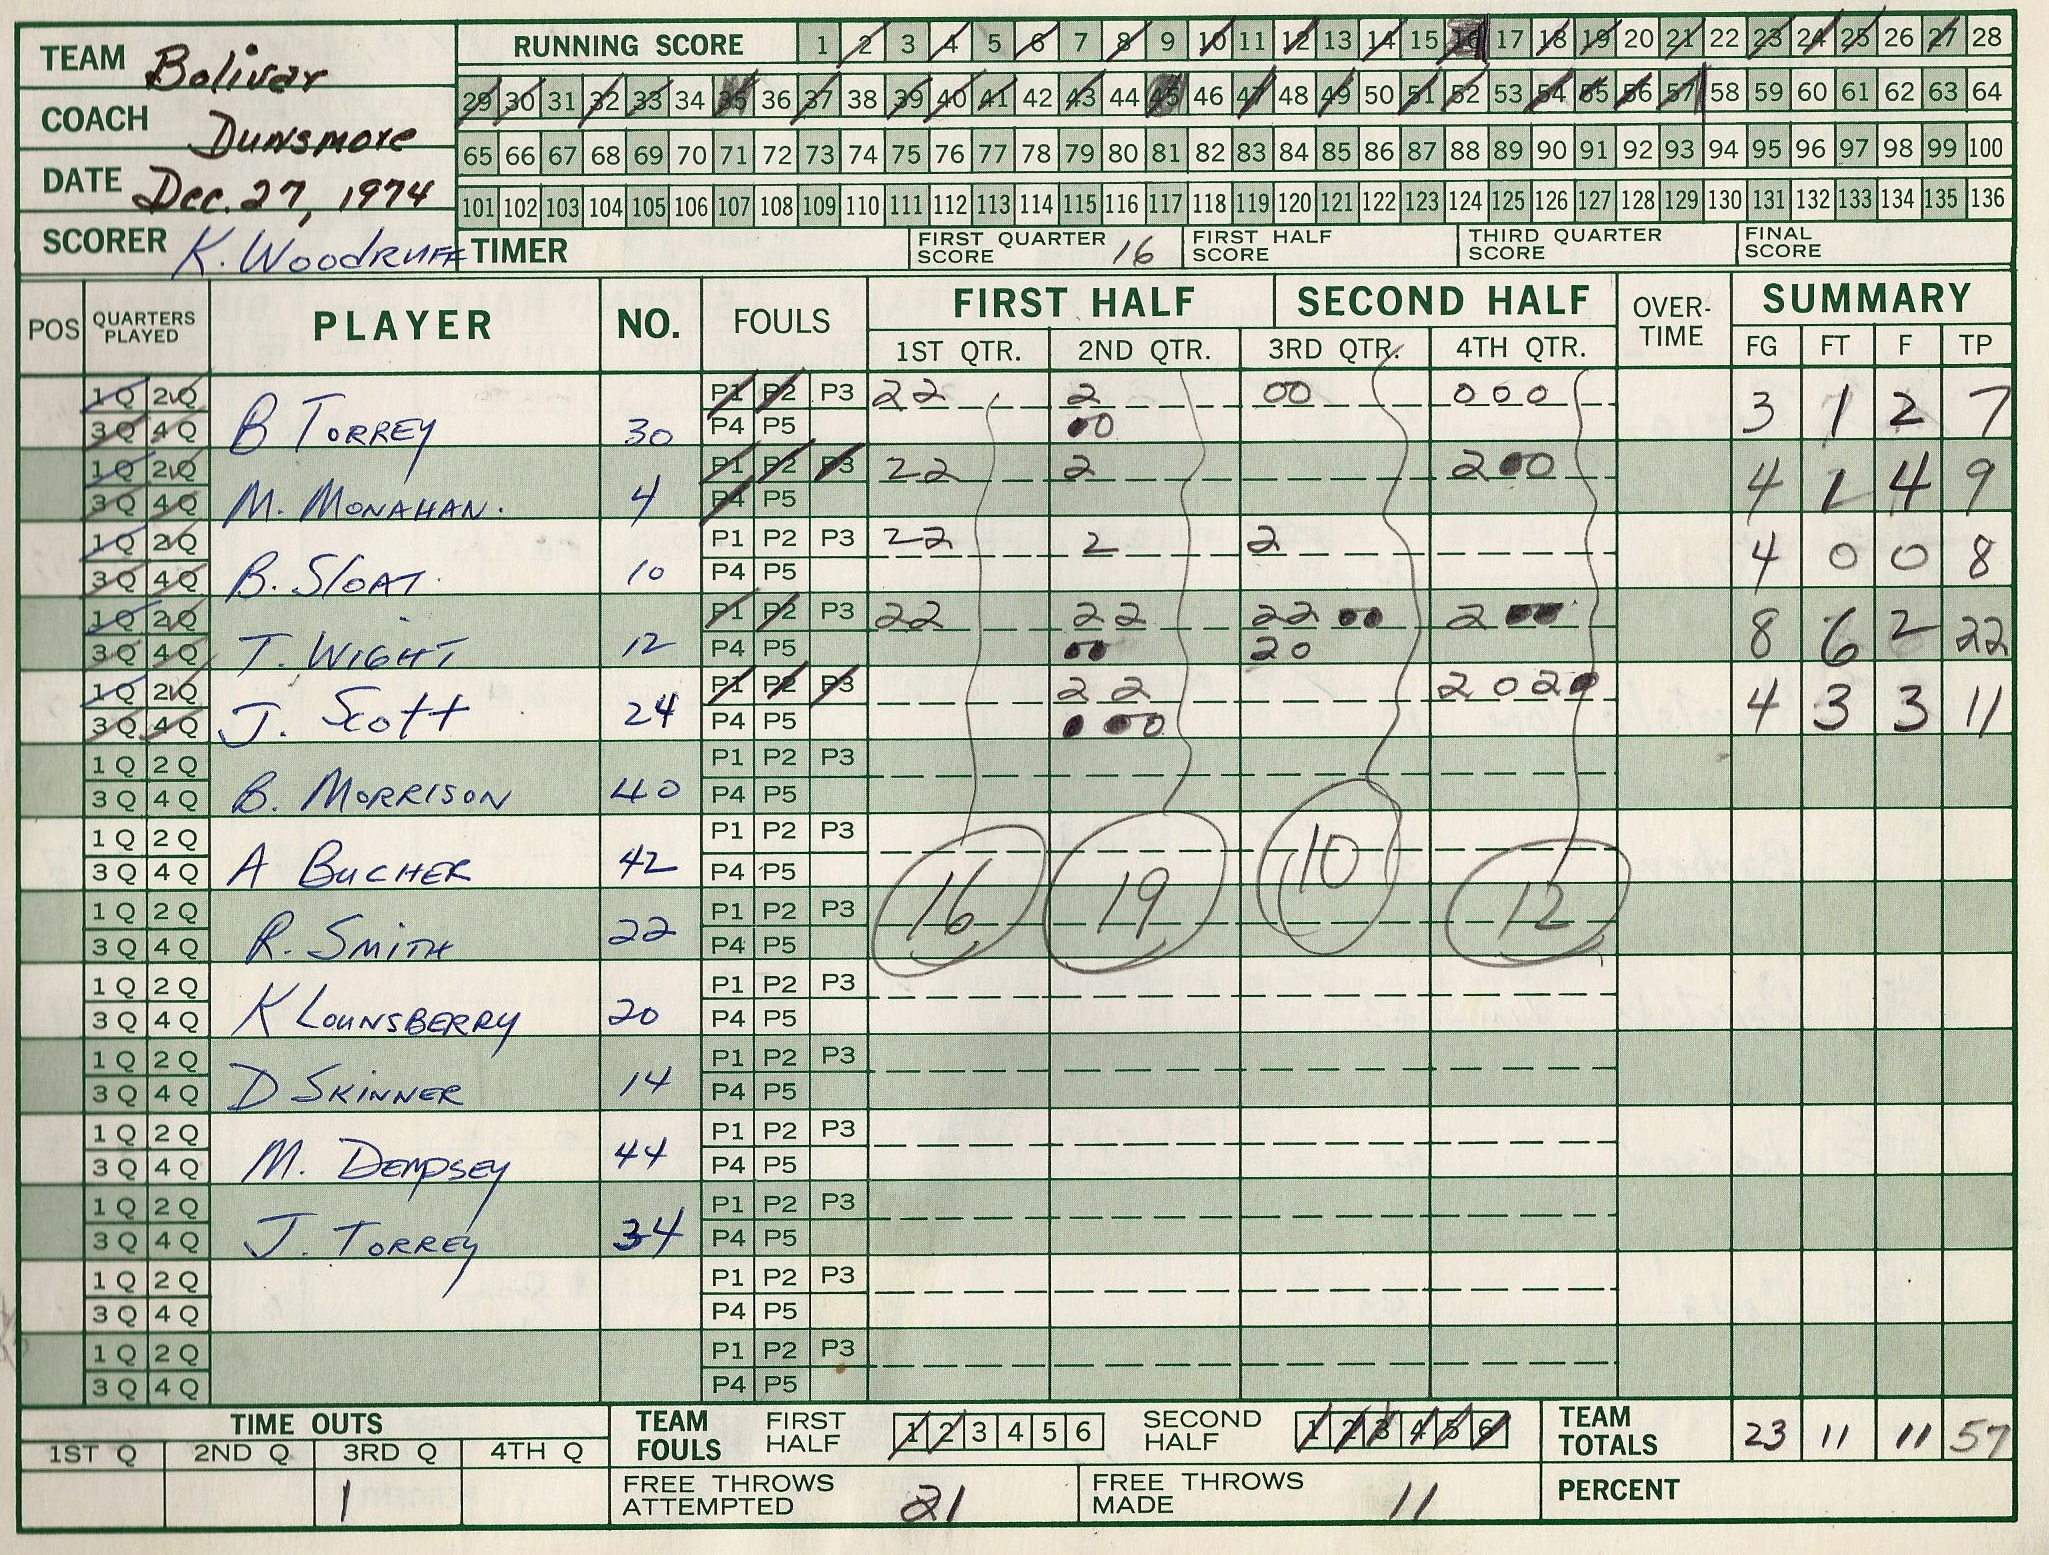 TEAM Bolivar
COACH Dunsmore
DATE Dec. 27, 1974
SCORER K. Woodruff
RUNNING SCORE 1 2 3 4 5 6 7 8 9 10 11 12 13 14 15 16 17 18 19 20 21 22 23 24 25 26 27 28
29 30 31 32 33 34 35 36 37 38 39 40 41 42 43 44 45 46 47 48 49 50 51 52 53 54 55 56 57 58 59 60 61 62 63 64
65 66 67 68 69 70 71 72 73 74 75 76 77 78 79 80 81 82 83 84 85 86 87 88 89 90 91 92 93 94 95 96 97 98 99 100
101 102 103 104 105 106 107 108 109 110 111 112 113 114 115 116 117 118 119 120 121 122 123 124 125 126 127 128 129 130 131 132 133 134 135 136
TIMER FIRST QUARTER SCORE 16 FIRST HALF SCORE THIRD QUARTER SCORE FINAL SCORE
POS QUARTERS PLAYED PLAYER NO. FOULS FIRST HALF SECOND HALF OVER-TIME SUMMARY
1ST QTR. 2ND QTR. 3RD QTR. 4TH QTR. FG FT F TP
1Q 2Q P1 P2 P3 22 2 00 000
3Q 4Q B TORREY 30 P4 P5 00 3 1 2 7
1Q 2Q P1 P2 P3 22 2 200
3Q 4Q M. MONAHAN. 4 P4 P5 4 1 4 9
1Q 2Q P1 P2 P3 22 2 2
3Q 4Q B. SLOAT. 10 P4 P5 4 0 0 8
1Q 2Q P1 P2 P3 22 22 22 00 2 00
3Q 4Q T. WIGHT 12 P4 P5 00 20 8 6 2 22
1Q 2Q P1 P2 P3 22 2020
3Q 4Q J. Scott 24 P4 P5 0 00 4 3 3 11
1Q 2Q P1 P2 P3
3Q 4Q B. MORRISON 40 P4 P5
1Q 2Q P1 P2 P3
3Q 4Q A BUCHER 42 P4 P5
16 19 10 12
1Q 2Q P1 P2 P3
3Q 4Q R. SMITH 22 P4 P5
1Q 2Q P1 P2 P3
3Q 4Q K LOUNSBERRY 20 P4 P5
1Q 2Q P1 P2 P3
3Q 4Q D SKINNER 14 P4 P5
1Q 2Q P1 P2 P3
3Q 4Q M. DEMPSEY 44 P4 P5
1Q 2Q P1 P2 P3
3Q 4Q J. TORREY 34 P4 P5
1Q 2Q P1 P2 P3
3Q 4Q P4 P5
1Q 2Q P1 P2 P3
3Q 4Q P4 P5
TIME OUTS
1ST Q 2ND Q 3RD Q 4TH Q
1
TEAM FOULS FIRST HALF 1 2 3 4 5 6 SECOND HALF 1 2 3 4 5 6 TEAM TOTALS 23 11 11 57
FREE THROWS ATTEMPTED 21 FREE THROWS MADE 11 PERCENT